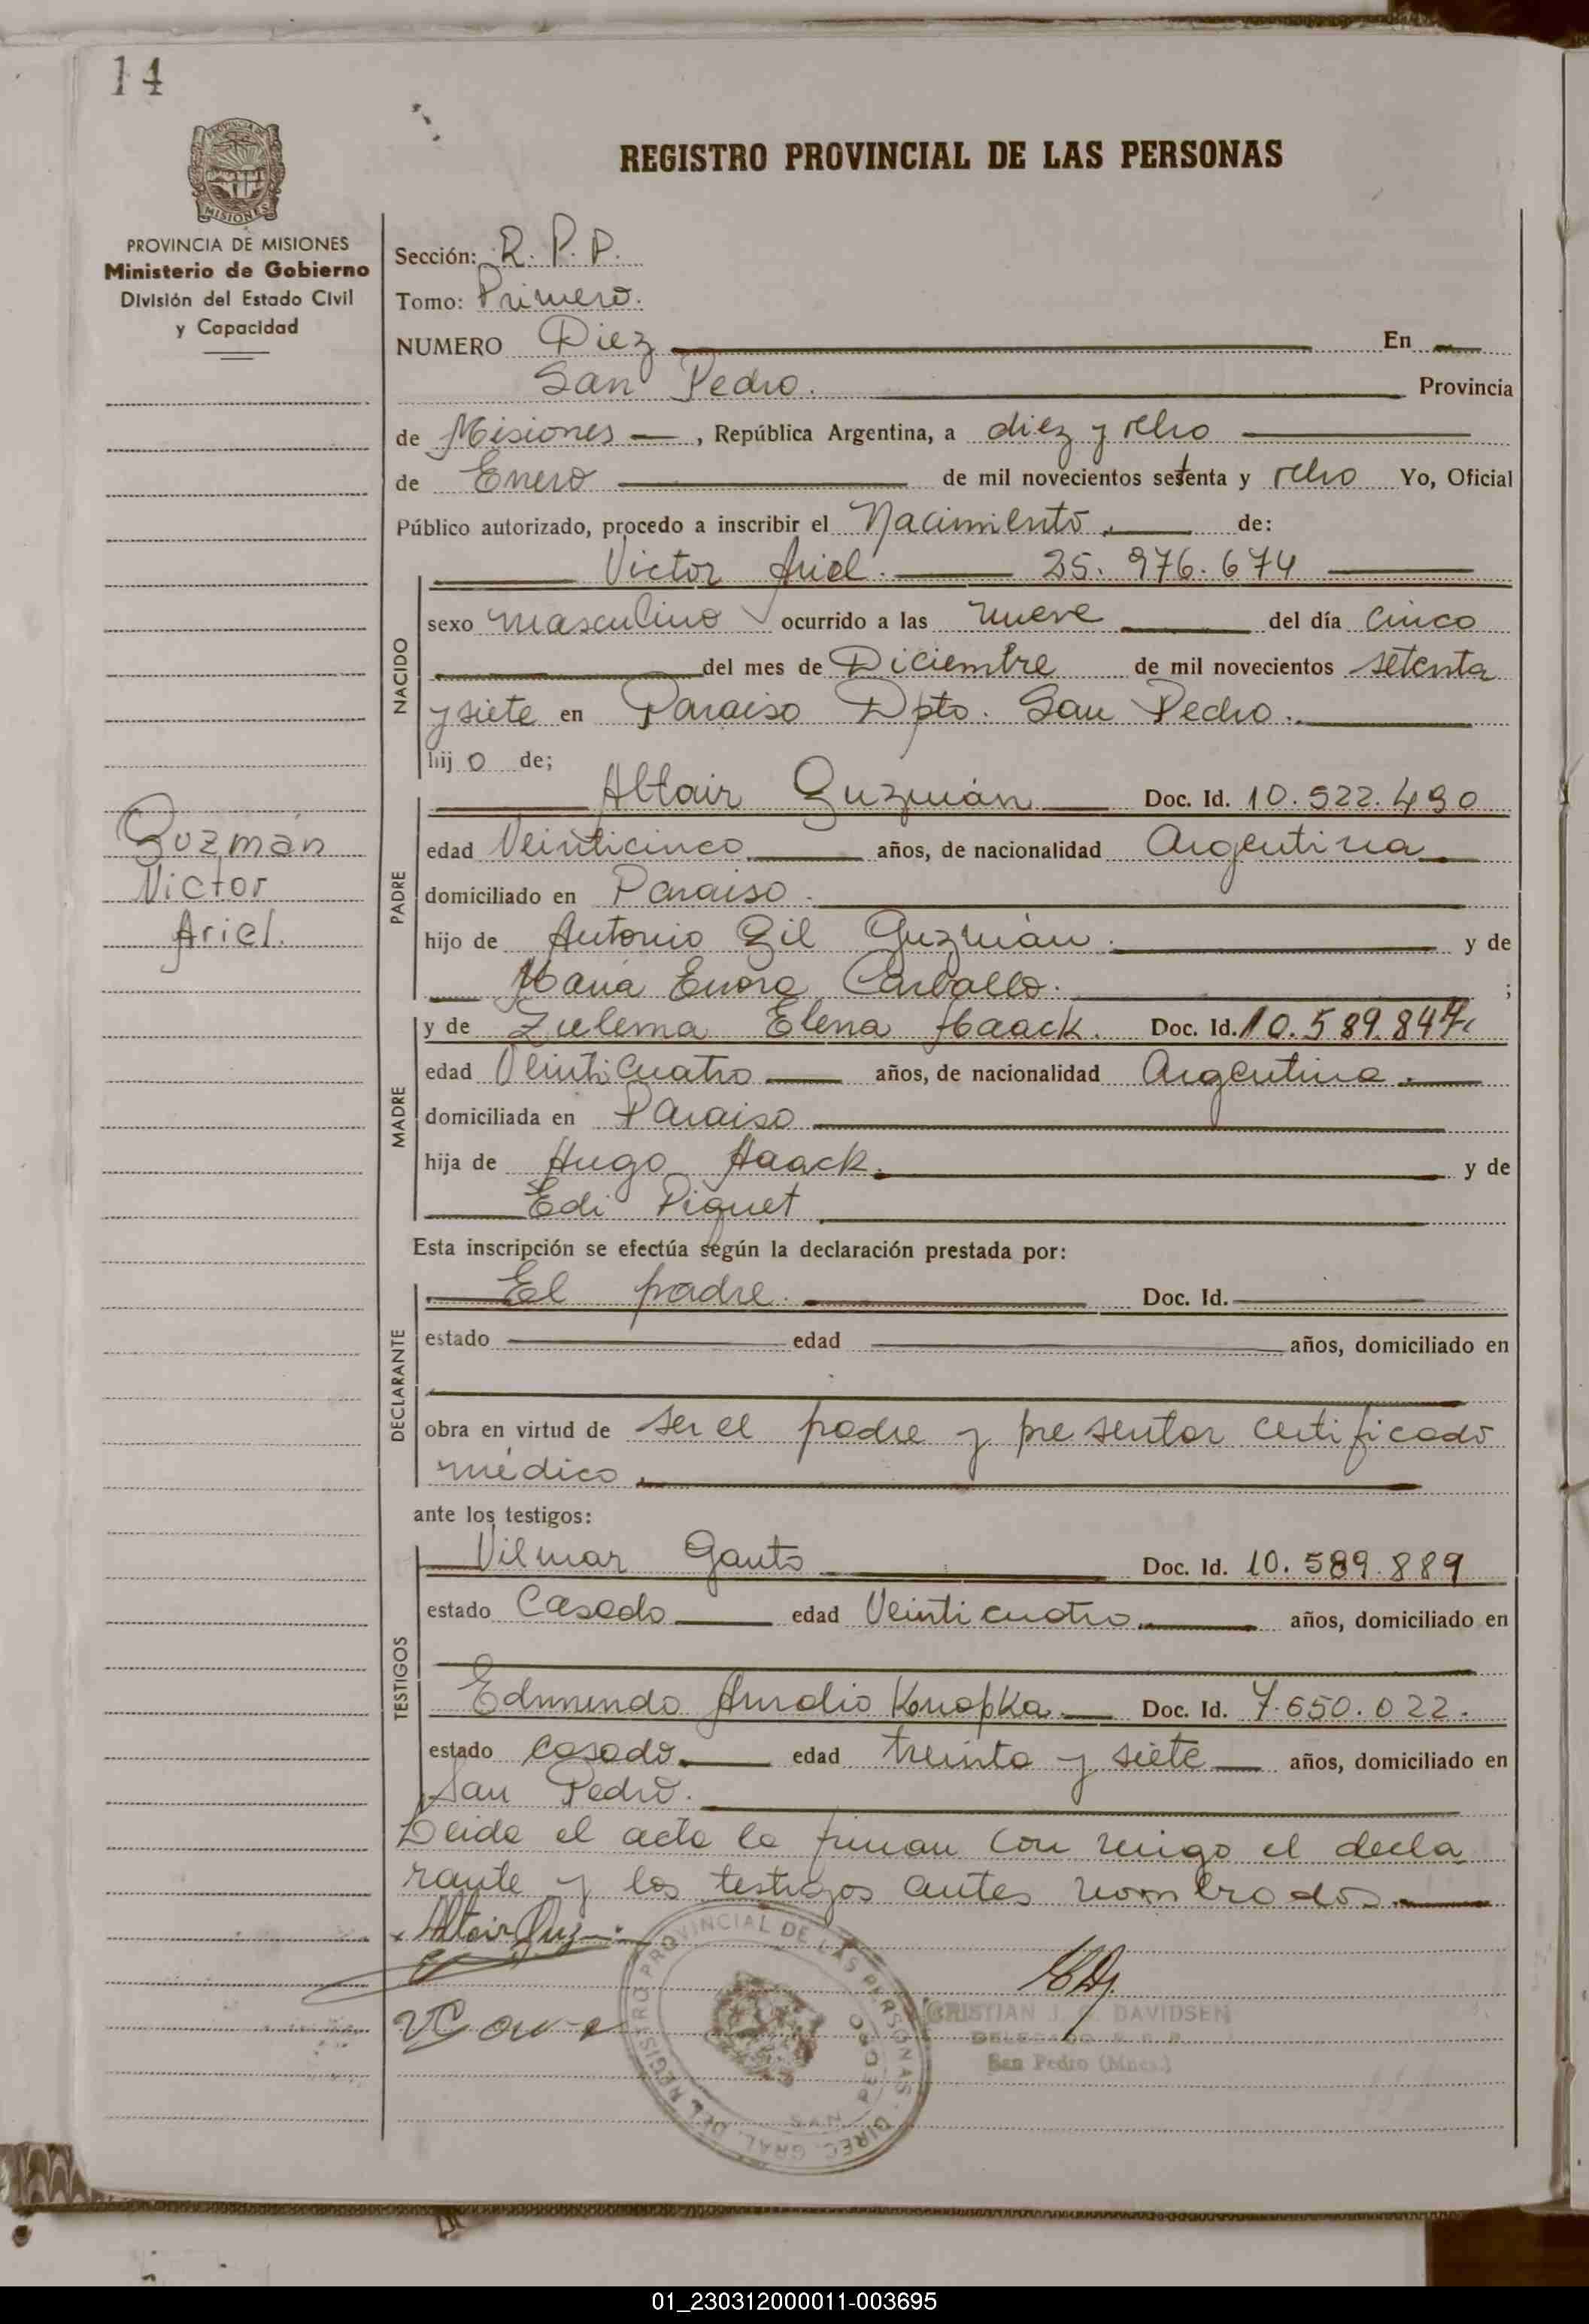 14
REGISTRO PROVINCIAL DE LAS PERSONAS
PROVINCIA DE MISIONES
Ministerio de Gobierno
División del Estado Civil
y Capacidad
Sección: R. P. P.
Tomo: Primero.
NUMERO Diez En
San Pedro. Provincia
de Misiones, República Argentina, a diez y ocho
de Enero de mil novecientos setenta y ocho Yo, Oficial
Público autorizado, procedo a inscribir el Nacimiento. de:
NACIDO
Victor Ariel. 25.976.674
sexo masculino ocurrido a las nueve del día cinco
del mes de Diciembre de mil novecientos setenta
y siete en Paraiso Dpto. San Pedro.
hijo de;
Guzmán
Victor
Ariel.
PADRE
Altair Guzmán Doc. Id. 10.522.490
edad Veinticinco años, de nacionalidad Argentina
domiciliado en Paraiso.
hijo de Antonio Gil Guzmán. y de
Maria Carballo. ;
MADRE
y de Zulema Elena Haack. Doc. Id. 10.589.847
edad Veinticuatro años, de nacionalidad Argentina.
domiciliada en Paraiso
hija de Hugo Haack. y de
Edi Piquet
Esta inscripción se efectúa según la declaración prestada por:
DECLARANTE
El padre. Doc. Id.
estado edad años, domiciliado en
obra en virtud de ser el padre y presentar certificado
médico.
ante los testigos:
TESTIGOS
Vilmar Gauto Doc. Id. 10.589.889
estado Casado edad Veinticuatro años, domiciliado en
Edmundo Konopka Doc. Id. 7.650.022.
estado casado. edad treinta y siete años, domiciliado en
San Pedro.
Leida el acta la firman con migo el decla
rante y los testigos antes nombrados.
Altair Guz
DIREC. GRAL. DEL REGISTRO PROVINCIAL DE LAS PERSONAS
SAN PEDRO
CRISTIAN J. C. DAVIDSEN
DELEGADO R. P. P.
San Pedro (Mnes.)
01_230312000011-003695